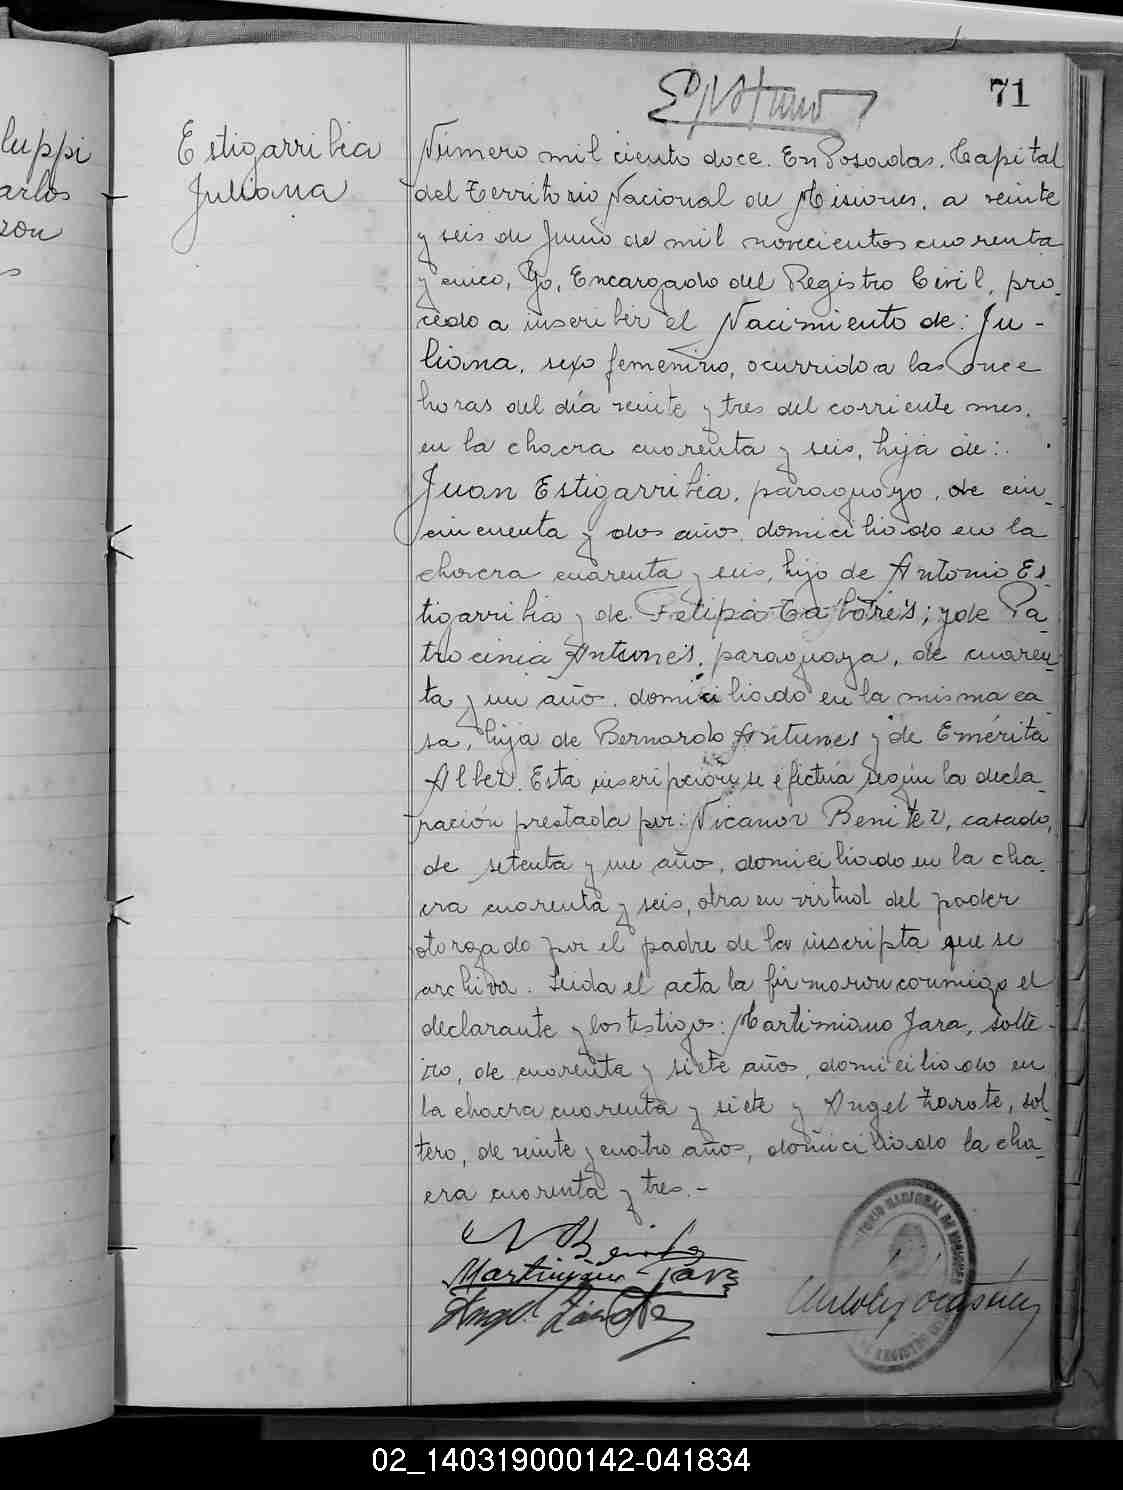 71
luppi
arlos
zon
s
Estigarribia
Juliana
Número mil ciento doce. En Posadas. Capital
del Territorio Nacional de Misiones, a veinte
y seis de Junio de mil novecientos cuarenta
y cinco, Yo, Encargado del Registro Civil, pro-
cedo a inscribir el Nacimiento de: Ju-
liana, sexo femenino, ocurrido a las once
horas del día veinte y tres del corriente mes,
en la chacra cuarenta y seis, hija de:
Juan Estigarribia, paraguayo, de cin-
cincuenta y dos años, domiciliado en la
chacra cuarenta y seis, hijo de Antonio Es-
tigarribia y de Felipa Tabores; y de Pa-
trocinia Antunes, paraguaya, de cuaren-
ta y un año, domiciliado en la misma ca-
sa, hija de Bernardo Antunes y de Emérita
Alvez. Esta inscripción se efectúa según la decla-
ración prestada por: Nicanor Benitez, casado,
de setenta y un año, domiciliado en la cha-
cra cuarenta y seis, obra en virtud del poder
otorgado por el padre de la inscripta que se
archiva. Leida el acta la firmaron conmigo el
declarante y los testigos: Martimiano Jara, solte-
ro, de cuarenta y siete años, domiciliado en
la chacra cuarenta y siete y Angel Zarate, sol-
tero, de veinte y cuatro años, domiciliado la cha-
cra cuarenta y tres.-
N Benitez
Martimiano Jara
Angel Zarate
TERRITORIO NACIONAL DE MISIONES
REGISTRO
02_140319000142-041834